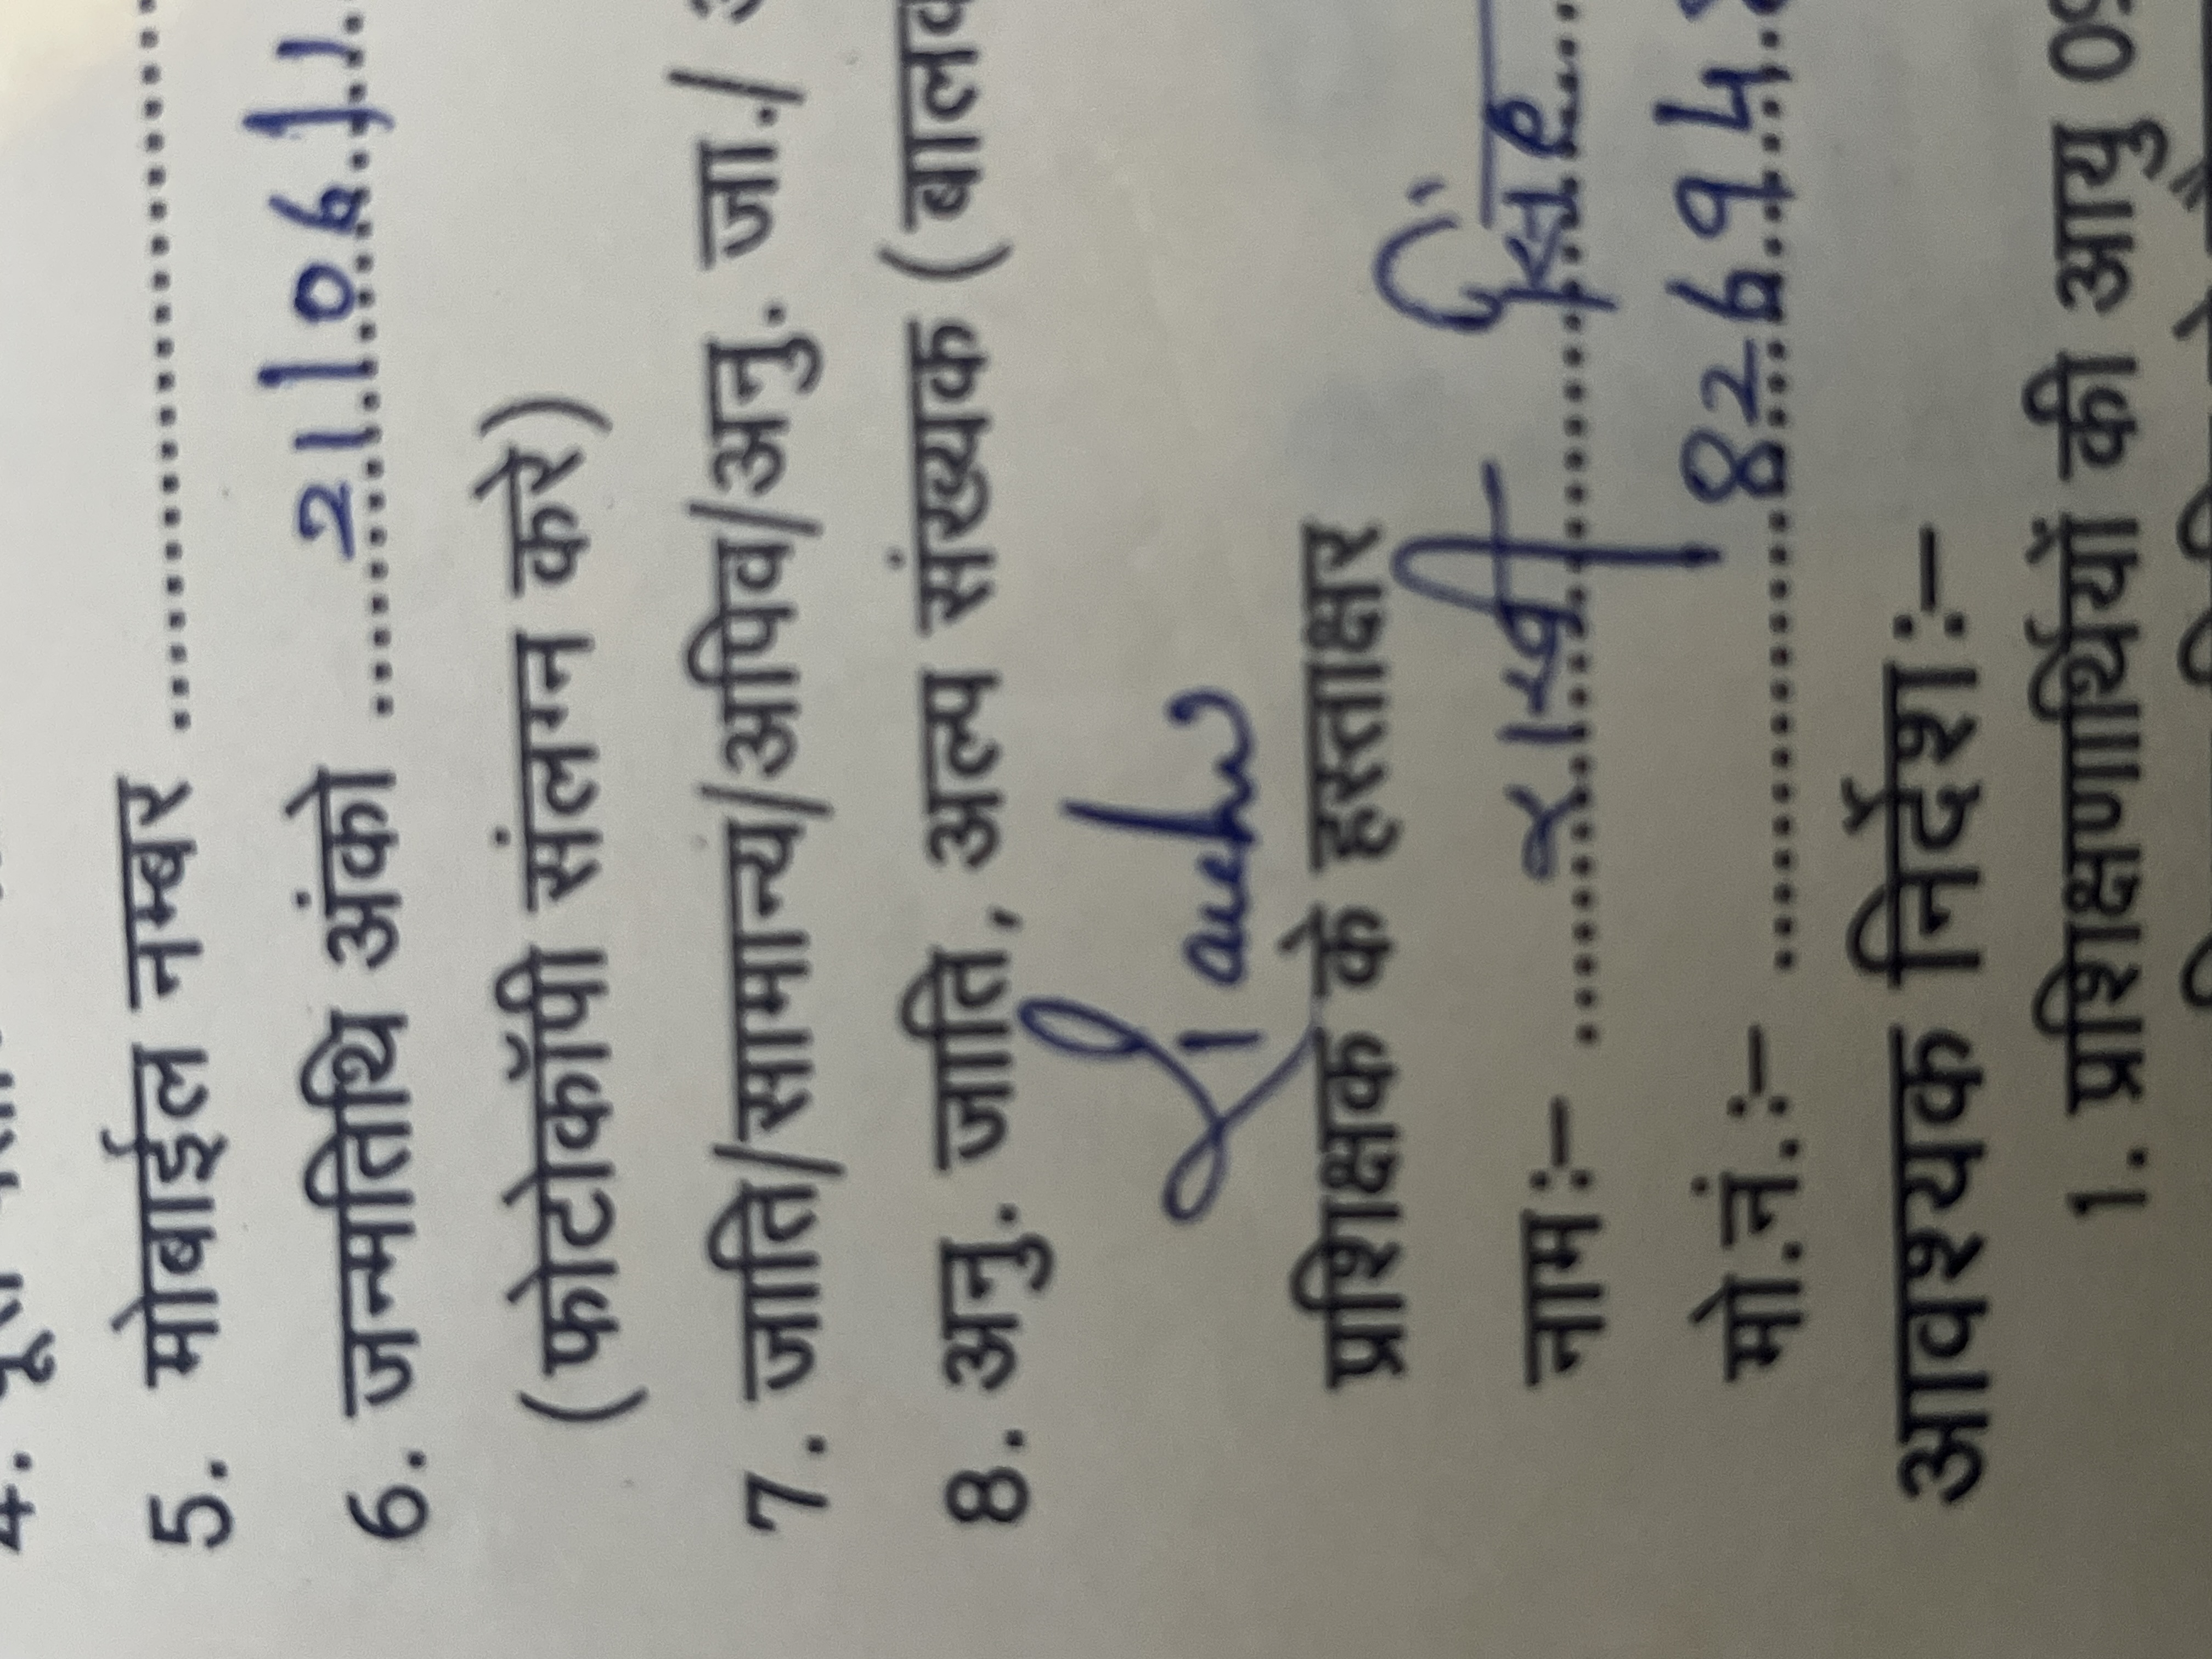 4.
5. मोबाईल नम्बर ..............................
6. जन्मतिथि अंको ............ 21/06/1
(फोटोकॉपी संलग्न करे)
7. जाति/सामान्य/अपिव/अनु. जा./
8. अनु. जाति, अल्प संख्यक (बालक
प्रशिक्षक के हस्ताक्षर
नाम:- ............ राखी सिंह
मो.नं.:- ............ 826945
आवश्यक निर्देश:-
1. प्रशिक्षणार्थियों की आयु 09